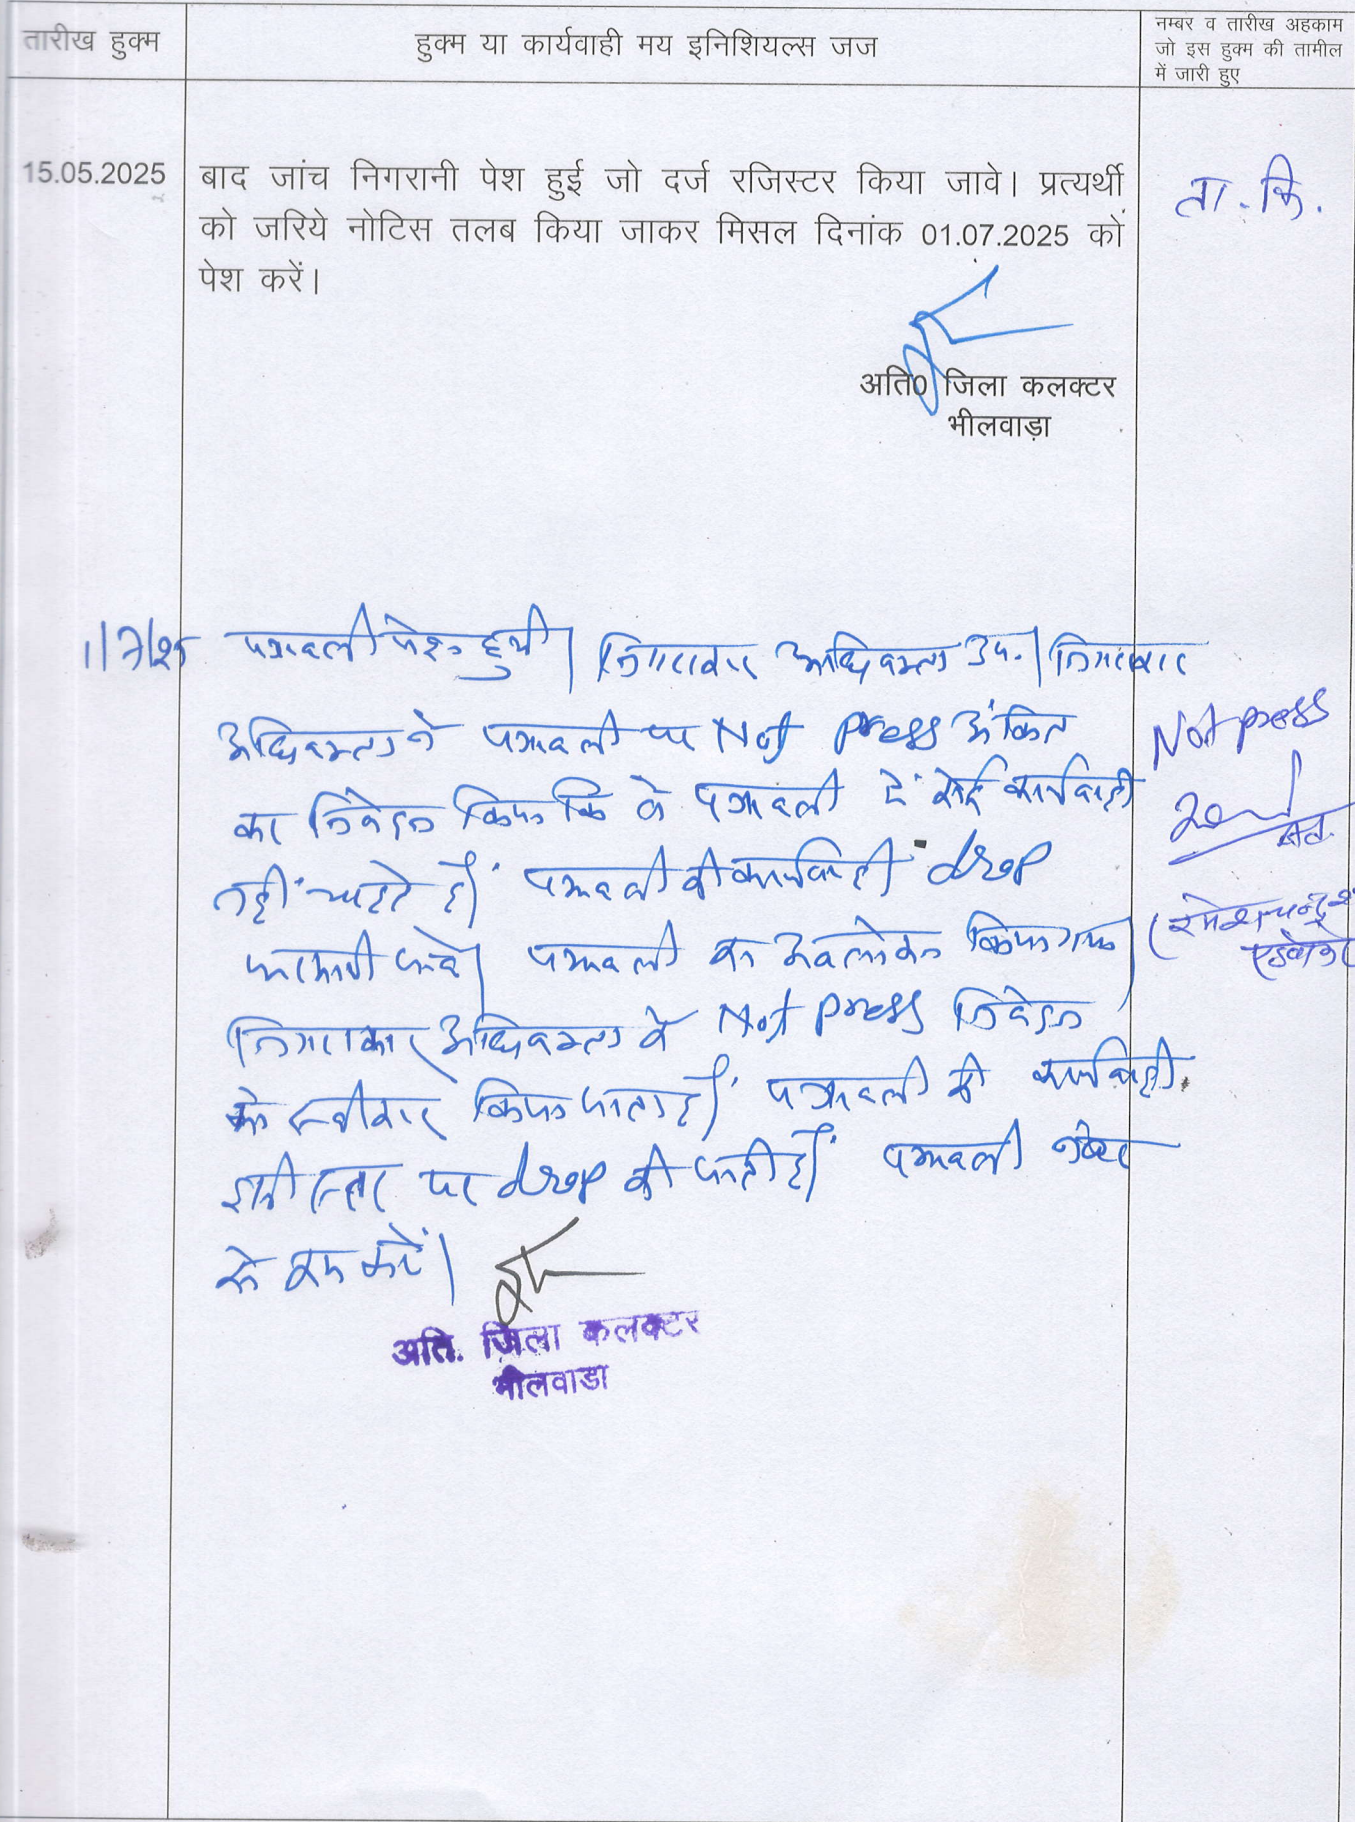 तारीख हुक्म
हुक्म या कार्यवाही मय इनिशियल्स जज
नम्बर व तारीख अहकाम
जो इस हुक्म की तामील
में जारी हुए
15.05.2025
बाद जांच निगरानी पेश हुई जो दर्ज रजिस्टर किया जावे। प्रत्यर्थी
को जरिये नोटिस तलब किया जाकर मिसल दिनांक 01.07.2025 को
पेश करें।
ता. कि.
अति0 जिला कलक्टर
भीलवाड़ा
1/7/25 पत्रावली पेश हुयी। निगराकार अधिवक्ता उप.। निगराकार
अधिवक्ता ने पत्रावली पर Not press अंकित
कर निवेदन किया कि वे पत्रावली में कोई कार्यवाही
नहीं चाहते है। पत्रावली की कार्यवाही drop
फरमायी जावे। पत्रावली का अवलोकन किया गया।
निगराकार अधिवक्ता के Not press निवेदन
को स्वीकार किया जाता है। पत्रावली की कार्यवाही
इसी स्तर पर drop की जाती है। पत्रावली नंबर
से कम करें।
Not press
(रमेशचन्द्र
एडवोकेट
अति. जिला कलक्टर
भीलवाडा